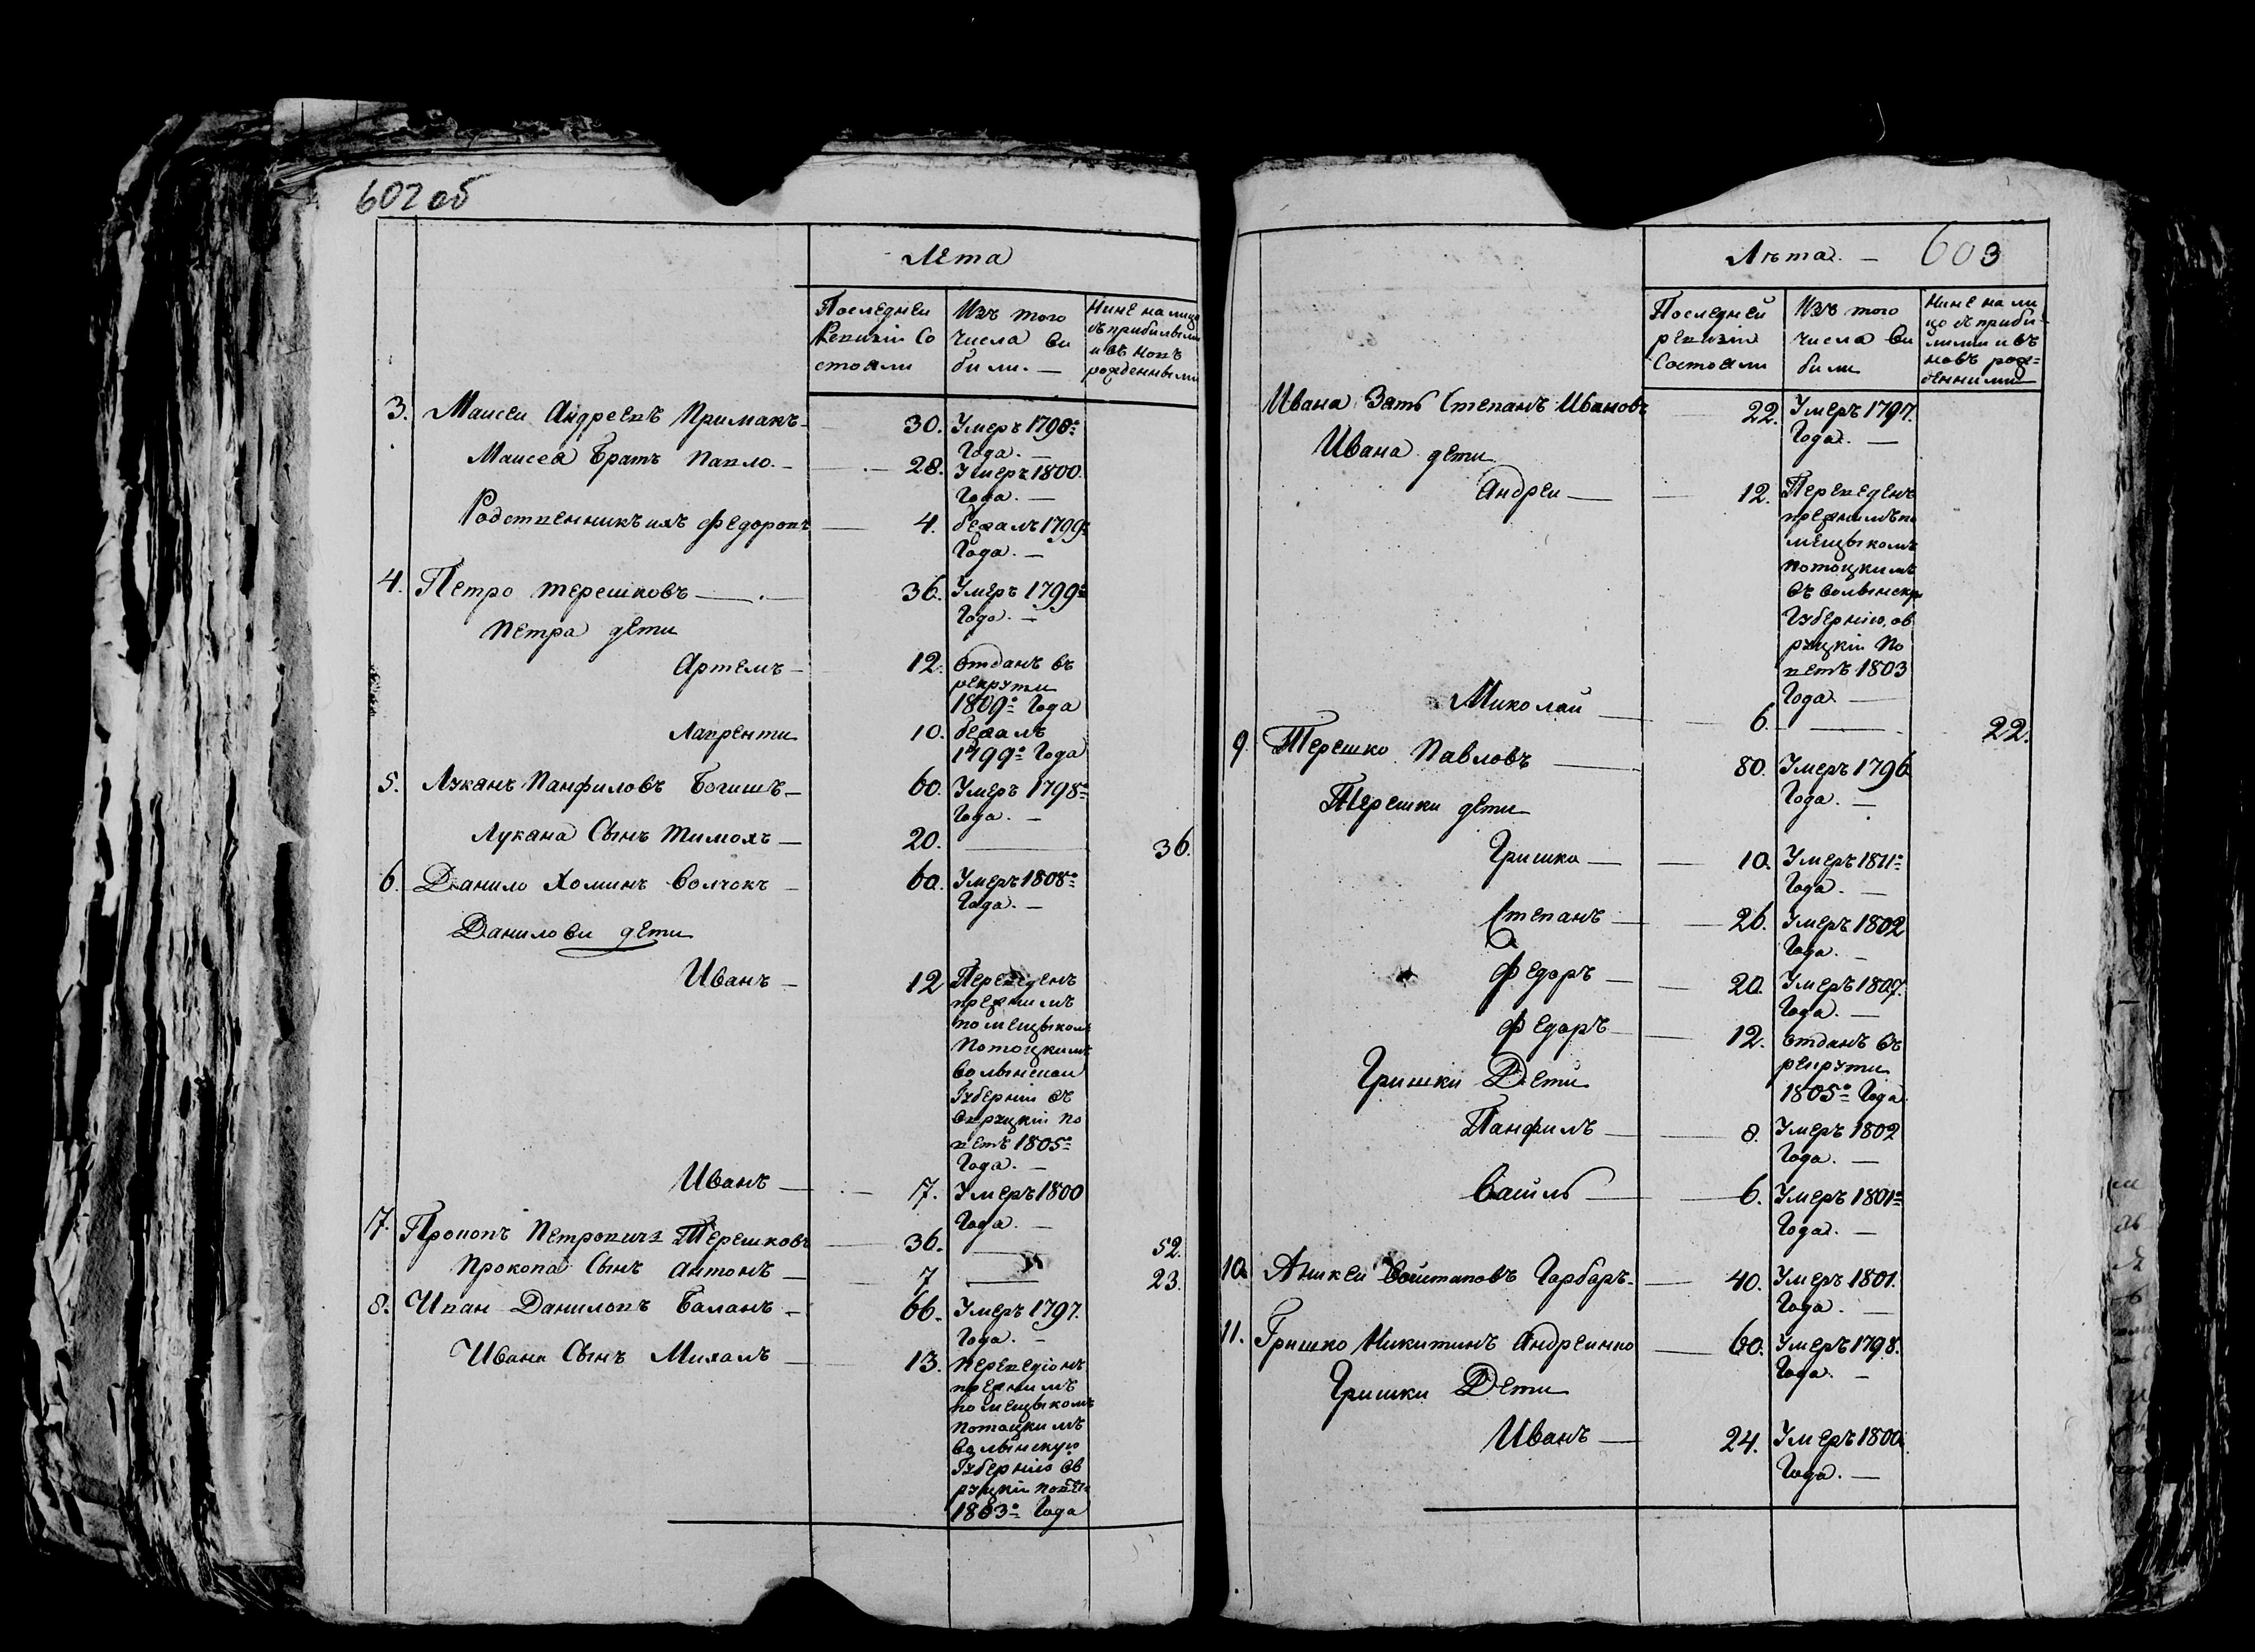 602 об
Лета
Последнеи
Ревизіи Со
стояли
Изъ того
числа ви
били. —
Нине на лицо
съ прибилыми
и въ новъ
рожденными
3. Маисеи Андреевъ Примакъ — 30. Умеръ 1798го
Года. —
Маисея Братъ Павло. — 28. Умеръ 1800.
Года. —
Родственникъ ихъ Федоровъ — 4. бежалъ 1799го
Года. —
4. Петро Терешковъ — 36. Умеръ 1799го
Года. —
Петра дети
Артемъ — 12. отданъ въ
рекрути
1809го Года
Лавренти 10. бежалъ
1799го Года
5. Луканъ Панфиловъ Богишъ — 60. Умеръ 1798го
Года. —
Лукана Сынъ Тимохъ — 20. — 36.
6. Данило Хоминъ Волчокъ — 60. Умеръ 1808го
Года. —
Данилови дети
Иванъ — 12 Переведенъ
прежнимъ
помещыкомъ
Потоцкимъ
Волынскои
Губерніи въ
Овруцкіи По
ветъ 1805го
Года. —
Иванъ — 7. Умеръ 1800
Года. —
7. Прокопъ Петровичъ Терешковъ — 36. — 52.
Прокопа Сынъ Антонъ — 7 — 23.
8. Иван Даниловъ Баланъ — 66. Умеръ 1797.
Года. —
Ивана Сынъ Михалъ — 13. Переведіонъ
прежнимъ
помещыкомъ
Потоцкимъ
Волынскую
Губернію Ов
руцкіи Повет
1803го Года
603
Лѣта. —
Последней
ревизіи
Состояли
Изъ того
числа ви
били
Нине на ли
цо съ приби-
лими и въ
новъ рож=
денними
Ивана Зать Степанъ Ивановъ 22. Умеръ 1797.
Года. —
Ивана дети
Андреи — 12. Переведенъ
прежнимъ по
мещыкомъ
Потоцкимъ
въ Волынску
Губернію, ов
руцкіи По
ветъ 1803
Года —
Миколай — 6. — 22.
9 Терешко Павловъ — 80. Умеръ 1796
Года. —
Терешки дети
Гришко — 10. Умеръ 1811го
Года. —
Степанъ — 26. Умеръ 1802
Года. —
Федоръ — 20. Умеръ 1807.
Года. —
Федоръ — 12. отданъ въ
рекрути
1805го Года
Гришки Дети
Панфилъ — 8. Умеръ 1802
Года. —
Василь — 6. Умеръ 1801го
Года. —
10. Аникеи Гарбаръ — 40. Умеръ 1801.
Года. —
11. Гришко Никитинъ Андреинко — 60. Умеръ 1798.
Года. —
Гришки Дети
Иванъ — 24. Умеръ 1800
Года. —